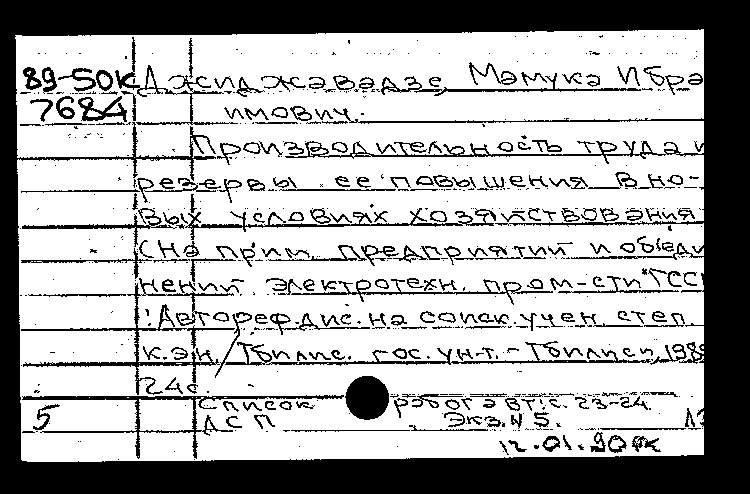 89-50к Джиджавадзе, Мамука Ибра
7684 имович.
Производительность труда и
резервы ее повышения в но-
вых условиях хозяйствования
(На прим. предприятий и объеди
нений электротехн. пром-сти ГССР
: Автореф. дис. на соиск. учен. степ.
к.э.н. / Тбилис. гос. ун-т. - Тбилиси, 198
24с.
Список работ авт.: с. 23-24
5 ДСП Экз. N 5.
12.01.90